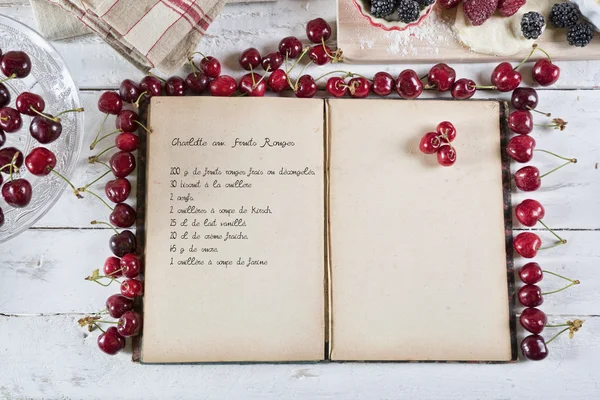 Charlotte aux Fruits Rouges
200 g de fruits rouges frais ou décongelés.
30 biscuit à la cuillère
2 œufs.
2 cuillères à soupe de Kirsch.
25 cl de lait vanillé.
20 cl de crème fraîche.
45 g de sucre.
1 cuillère à soupe de farine